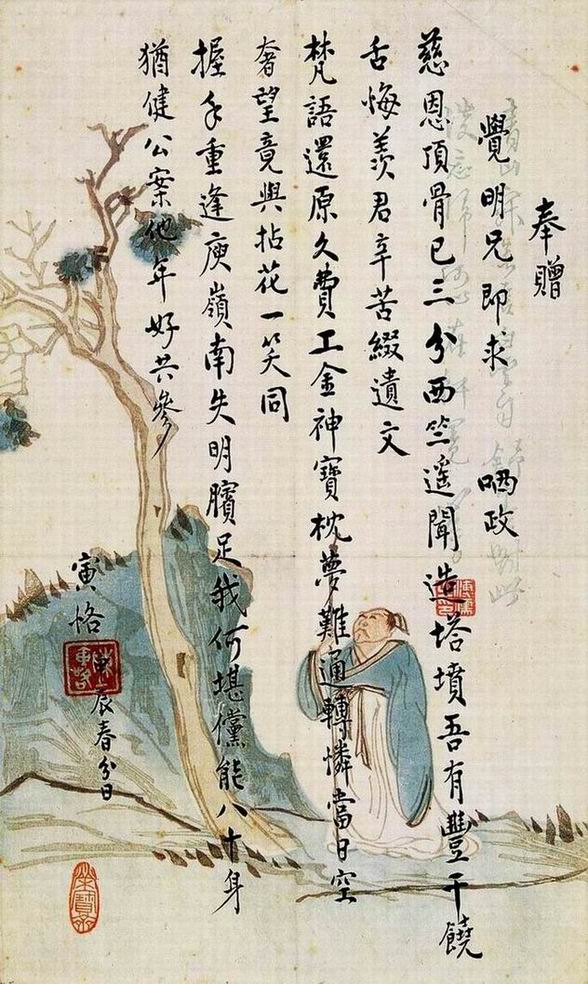 奉贈
覺明兄即求 哂政
慈恩頂骨已三分西竺遥聞造塔墳吾有豐干饒
舌悔羨君辛苦綴遺文
梵語還原久費工金神寶枕夢難通轉憐當日空
奢望竟與拈花一笑同
握手重逢庾嶺南失明臏足我何堪儻能八十身
猶健公案他年好共參
寅恪
辰春分日
榮寶齋